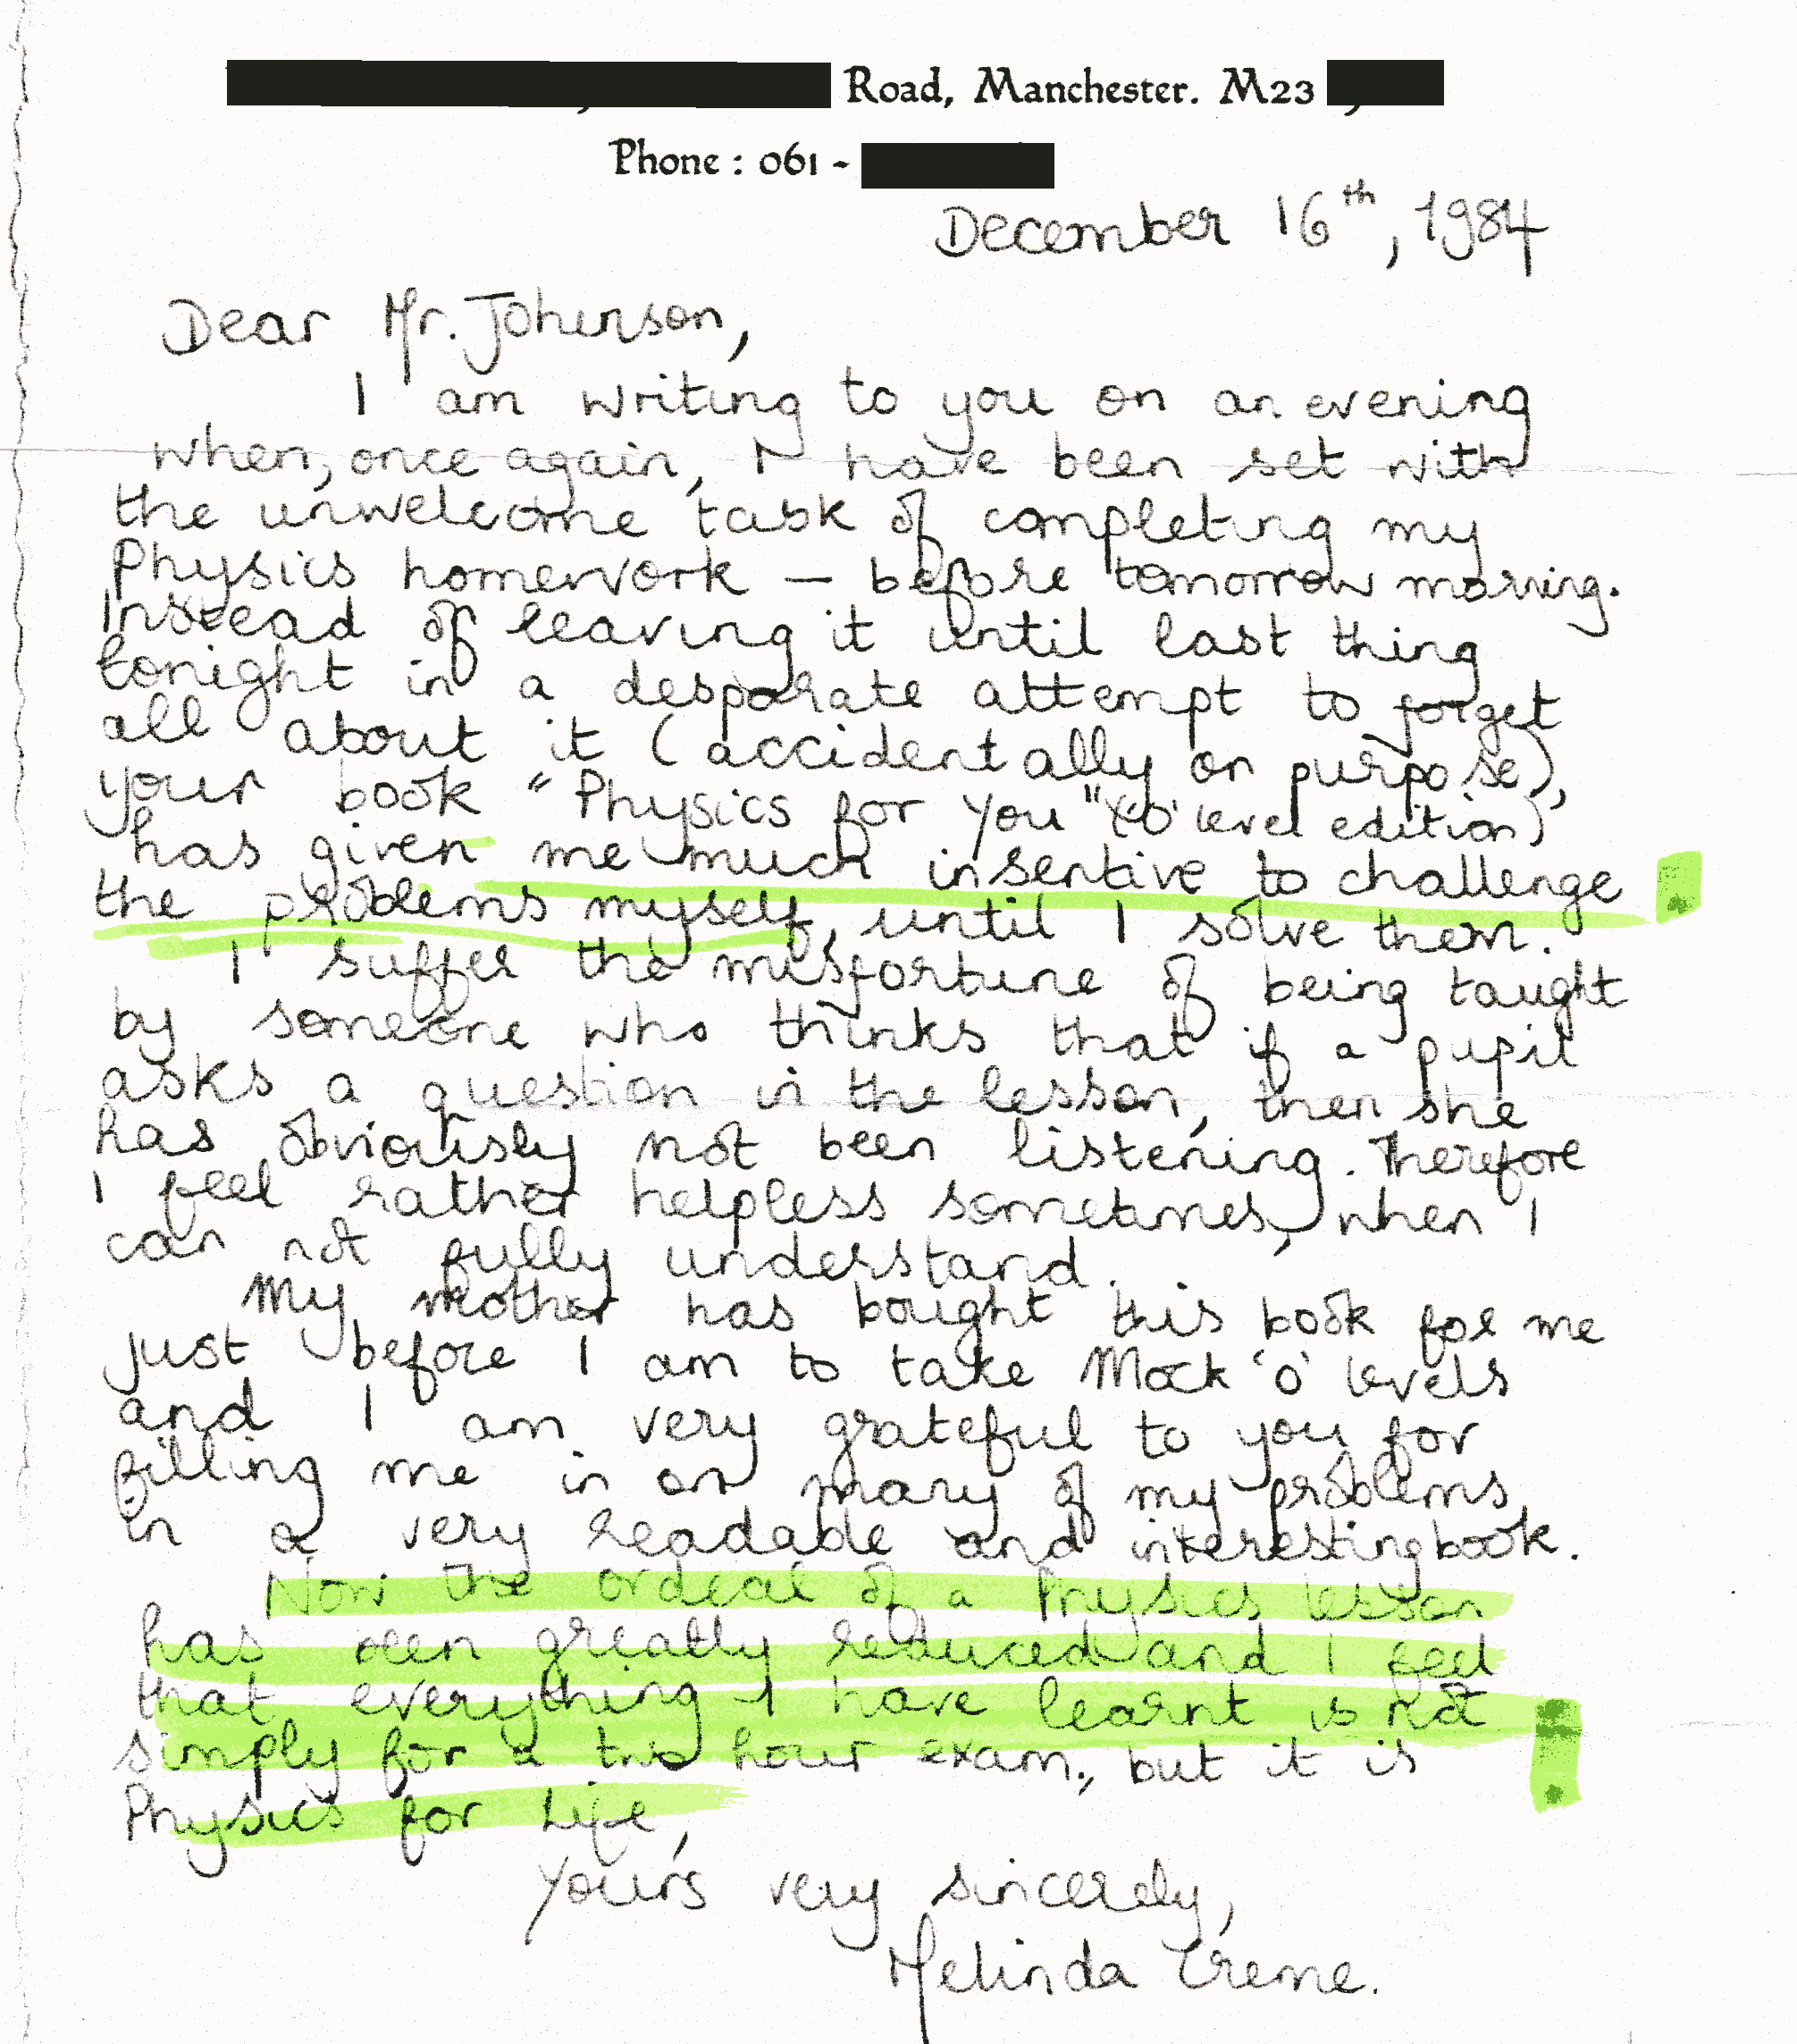 Road, Manchester. M23
Phone : 061 -
December 16th, 1984
Dear Mr. Johenson,
I am writing to you on an evening
when, once again, I have been set with
the unwelcome task of completing my
Physics homework — before tomorrow morning.
Instead of leaving it until last thing
tonight in a desparate attempt to forget
all about it (accidentally on purpose),
your book "Physics for You" ('O' level edition)
has given me much insentive to challenge
the problems myself, until I solve them.
I suffer the misfortune of being taught
by someone who thinks that if a pupil
asks a question in the lesson, then she
has obviously not been listening. Therefore
I feel rather helpless sometimes, when I
can not fully understand.
My mother has bought this book for me
just before I am to take Mock 'O' levels
and I am very grateful to you for
filling me in on many of my problems
in a very readable and interesting book.
Now the ordeal of a Physics lesson
has been greatly reduced and I feel
that everything I have learnt is not
simply for a two hour exam., but it is
Physics for Life,
Yours very sincerely,
Melinda